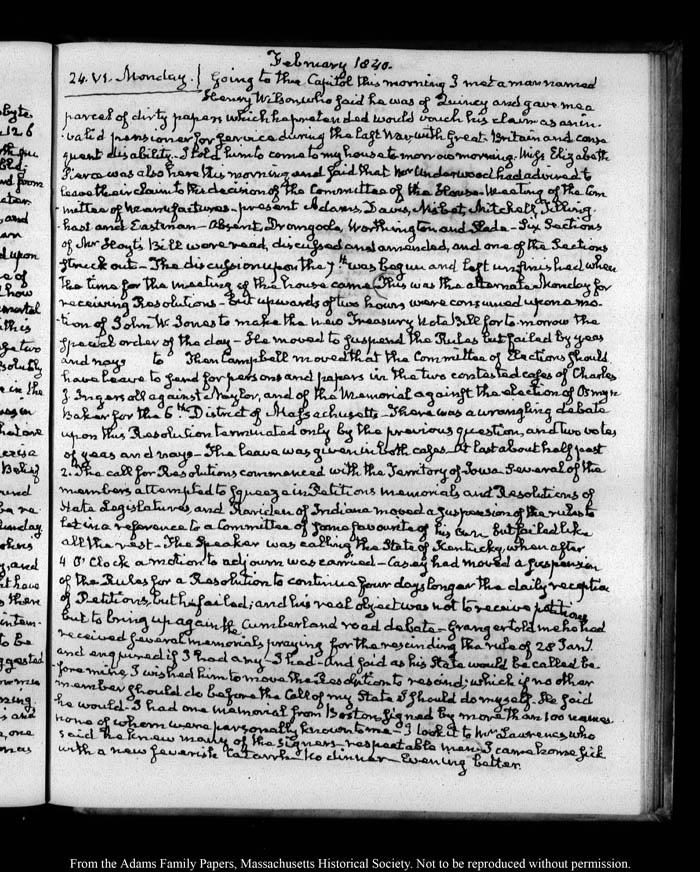 February 1840.
24. VI. Monday. Going to the Capitol this morning I met a man named
Henry Wilson who said he was of Quincy and gave me a
parcel of dirty papers which he pretended would vouch his claim as an in-
-valid pensioner for service during the last War with Great-Britain and conse
quent disability. I told him to come to my house to-morrow morning. Miss Elizabeth
was also here this morning and said that Mr Underwood had advised to
leave their claim to the decision of the Committee of the House. Meeting of the Com
mittee of Manufactures—present Adams, Davis, Nisbet, Mitchell, Tilling-
hast and Eastman—Absent, Dromgoole, Worthington and Slade—Six Sections
of Mr Hoyt's Bill were read, discussed and amended, and one of the Sections
struck out—The discussion upon the 7th was begun and left unfinished when
the time for the meeting of the house came. This was the alternate Monday for
receiving Resolutions—but upwards of two hours were consumed upon a mo-
-tion of John W. Jones to make the new Treasury Note Bill for to-morow the
special order of the day—He moved to suspend the Rules but failed by yeas
and nays to Then Campbell moved that the Committee of Elections should
have leave to send for persons and papers in the two contested cases of Charles
J. Ingersoll against Naylor, and of the Memorial against the election of Osmyn
Baker for the 6th District of Massachusetts—There was a wrangling debate
upon this Resolution terminated only by the previous question, and two votes
of yeas and nays—The leave was given in both cases. At last about half past
2. The call for Resolutions commenced with the Territory of Iowa. Several of the
members attempted to squeeze in Petitions memorials and Resolutions of
State Legislatures, and Rariden of Indiana moved a suspension of the rules to
let in a reference to a Committee of some favourite of his own but failed like
all the rest—The Speaker was calling the State of Kentucky, when after
4 O'Clock a motion to adjourn was carried—Casey had moved a suspension
of the Rules for a Resolution to continue four days longer the daily reception
of Petitions, but he failed; and his real object was not to receive petitions
but to bring up again the Cumberland road debate—Granger told me he had
received several memorials praying for the rescinding the rule of 28 Jany.
and enquired if I had any—I had—and said as his State would be called be
-fore mine, I wished him to move the Resolution to rescind; which if no other
member should do before the Call of my State I should do myself. He said
he would. I had one memorial from Boston, signed by more than 100 names
none of whom were personally known to me—I took it to Mr Lawrence, who
said he knew many of the signers—respectable men. I came home sick
with a new feverish Catarrh—No dinner—Evening better.
From the Adams Family Papers, Massachusetts Historical Society. Not to be reproduced without permission.